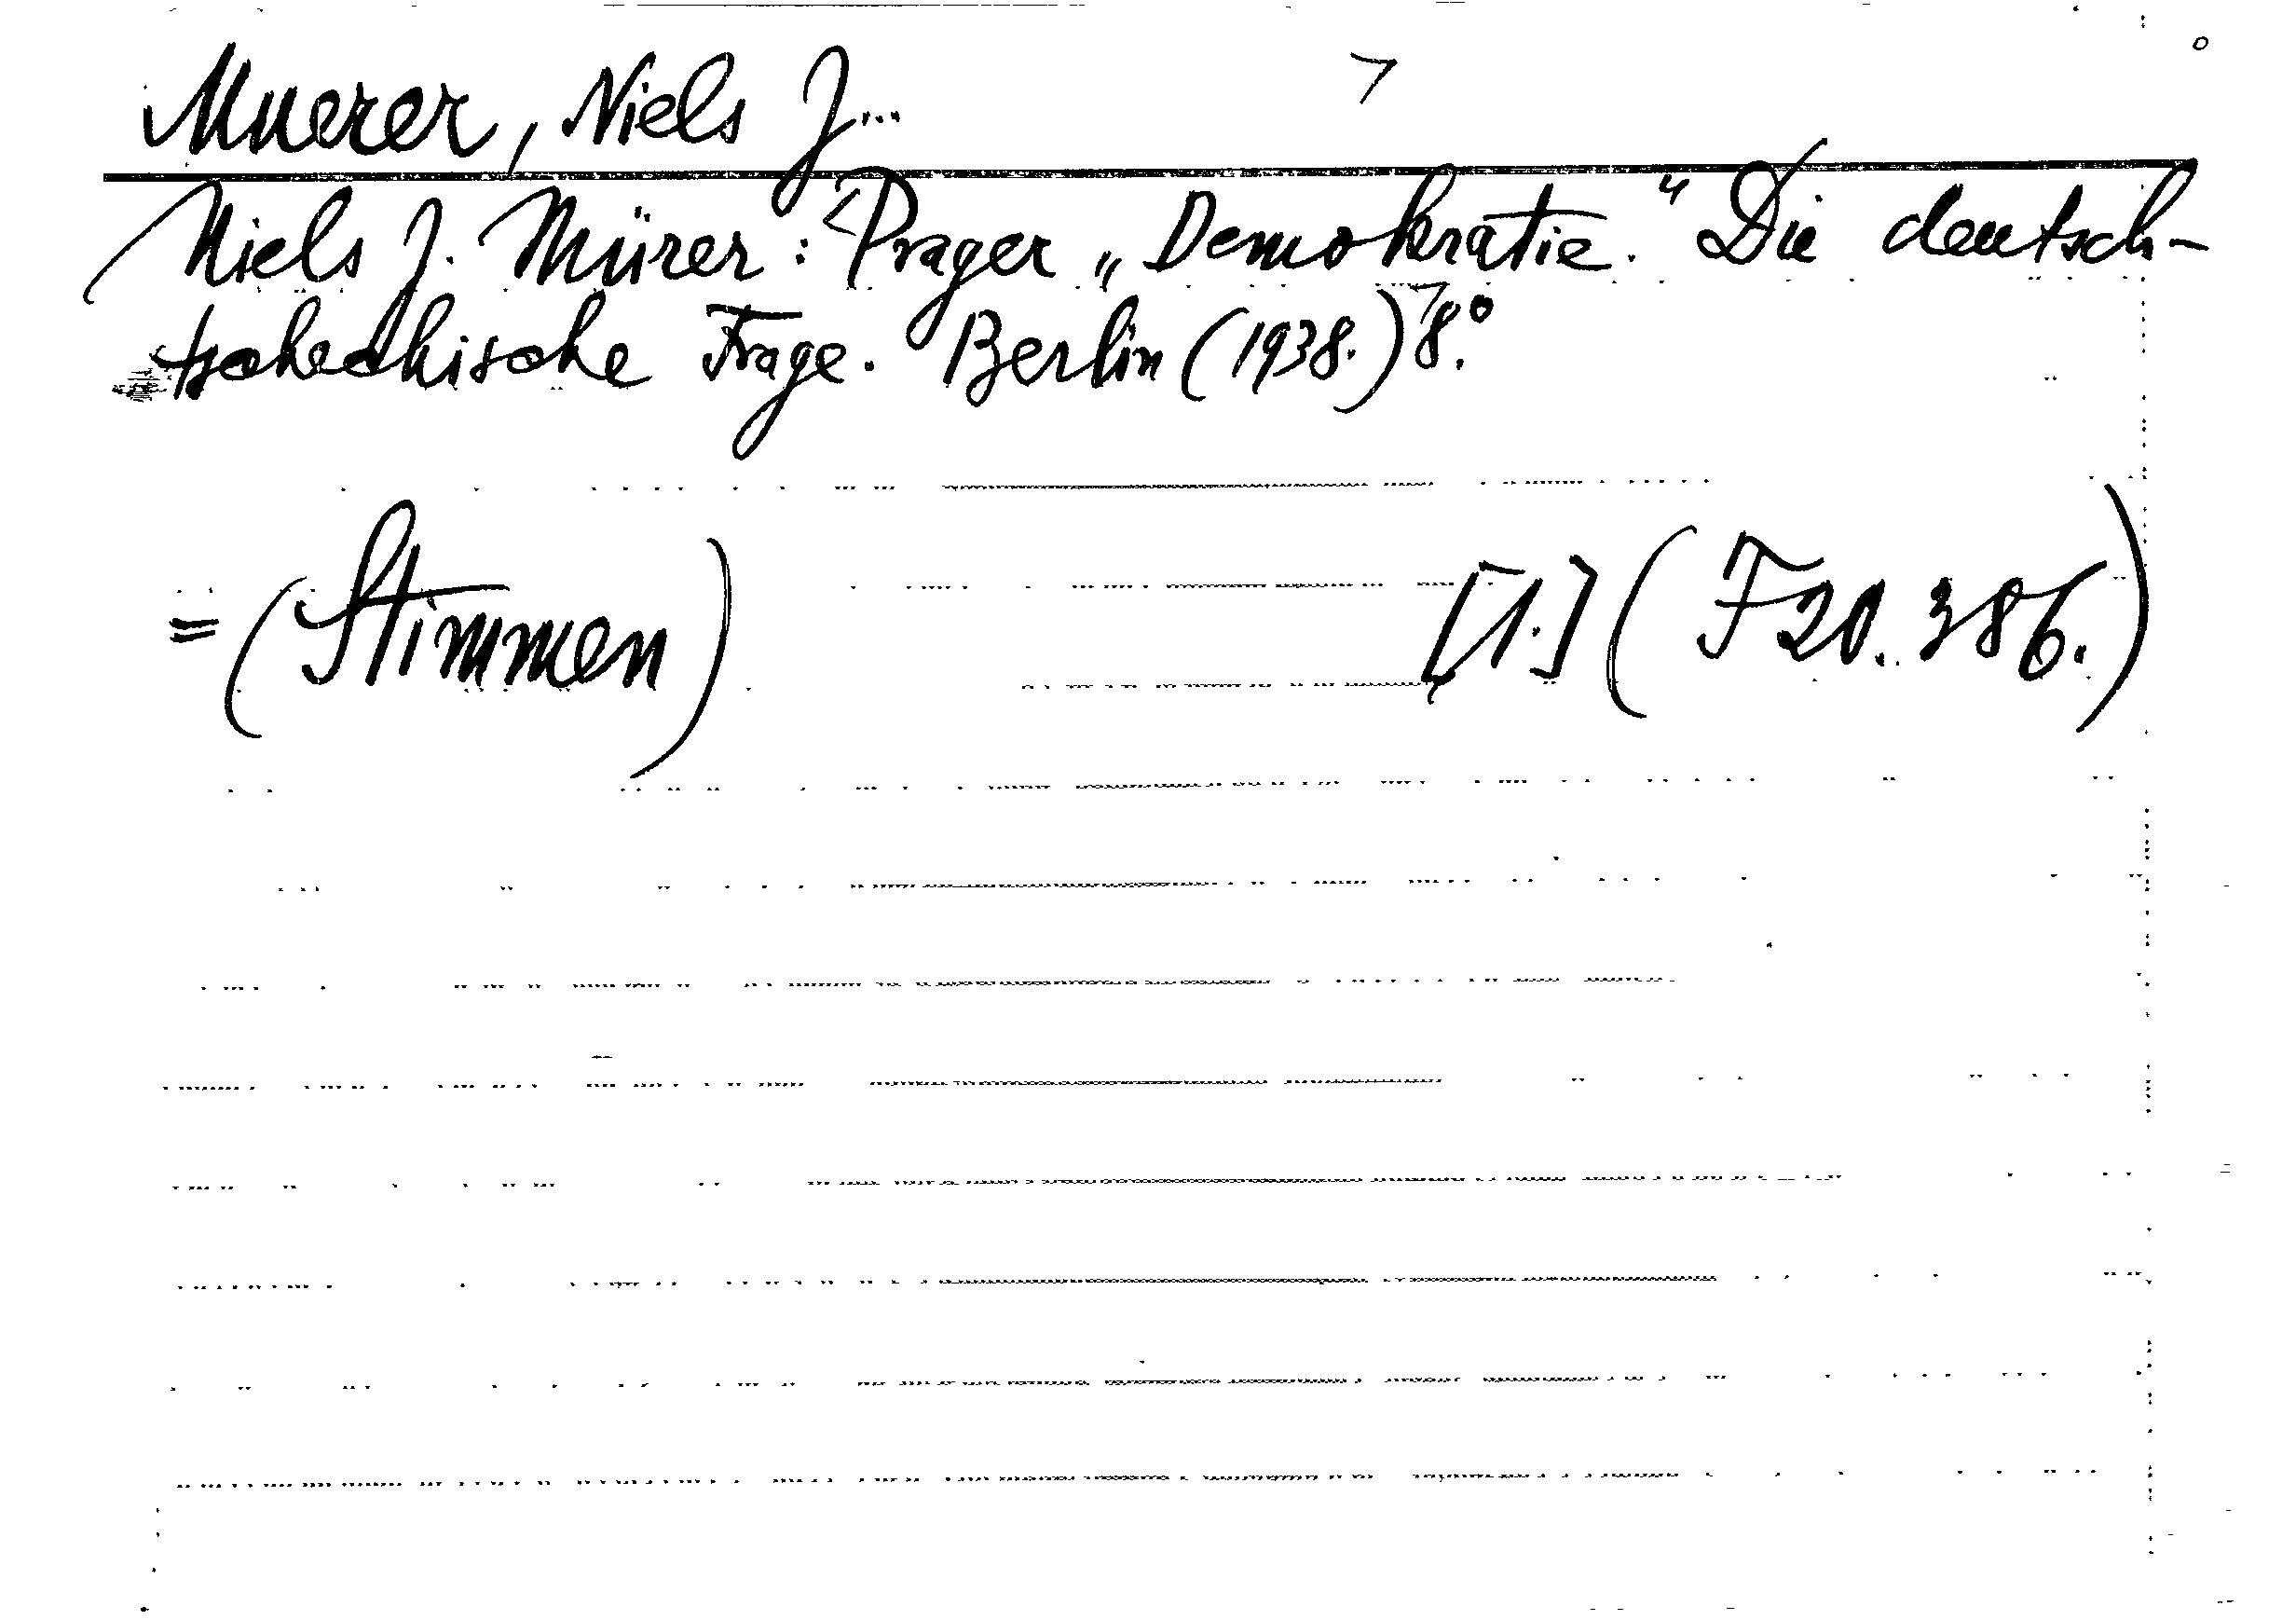 Muerer, Niels J...
Niels J. Mürer: Prager „Demokratie.“ Die deutsch-
tschechische Frage. Berlin (1938.) 8.°
= (Stimmen) [1.] (F20.386.)